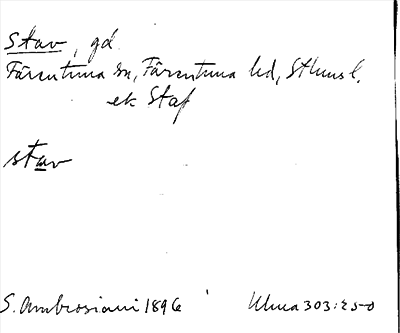 Stav, gd.
Färentuna sn, Färentuna hd, Sthms l.
ek Staf
stav
S. Ambrosiani 1896 Ulma 303:250